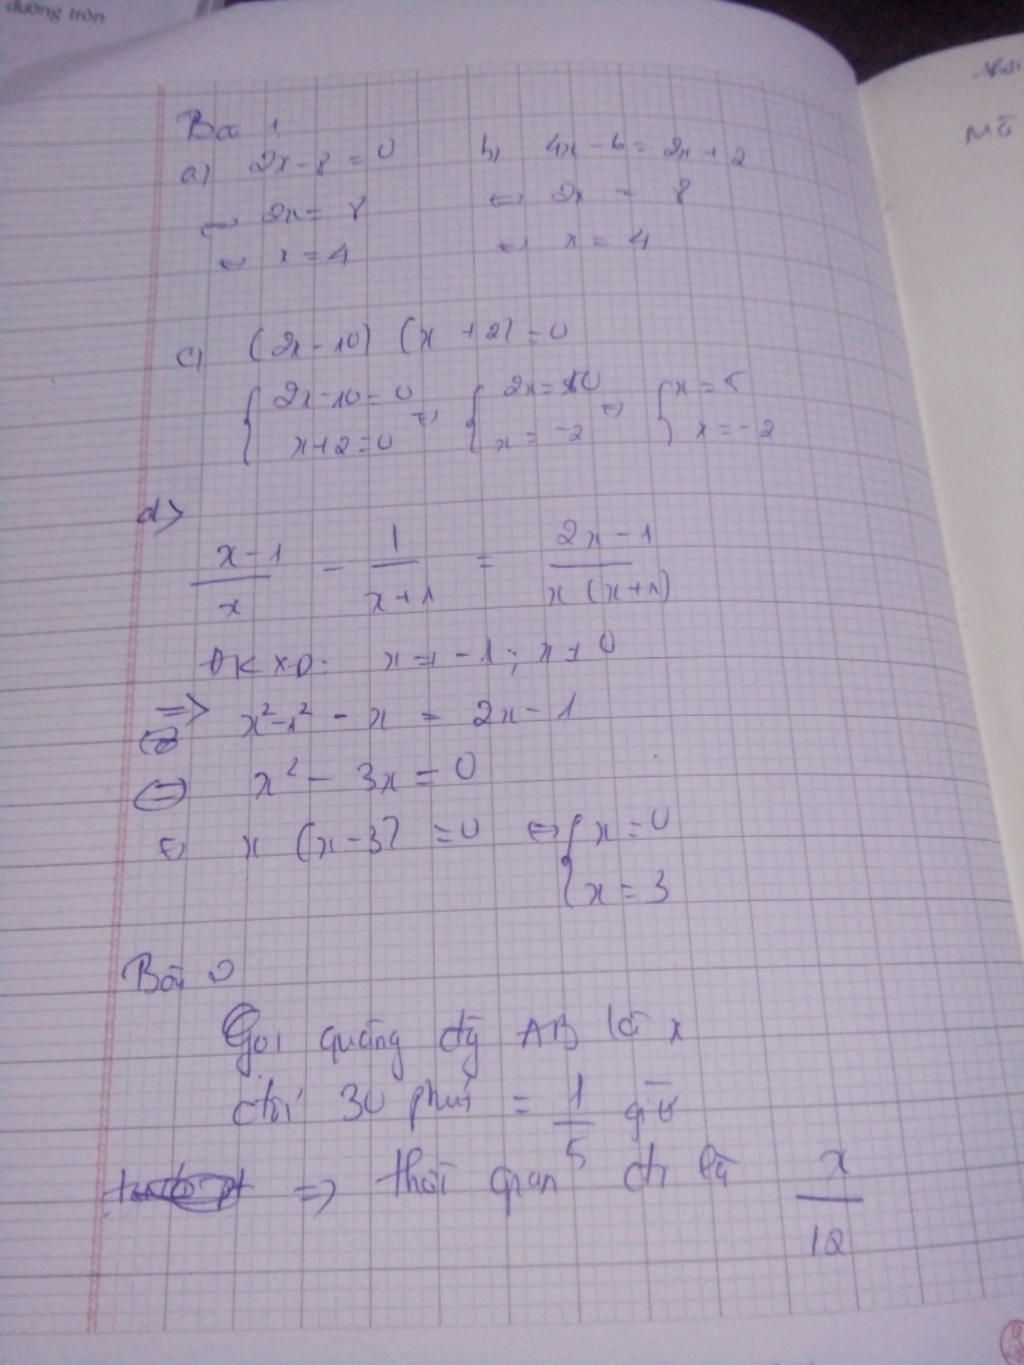 đường tròn
Bài 1
a) 2x - 8 = 0 b, 4x - 6 = 2x + 2
⇔ 2x = 8 ⇔ 2x = 8
⇔ x = 4 ⇔ x = 4
c) (2x - 10) (x + 2) = 0
{ 2x - 10 = 0 ⇔ { 2x = 10 ⇔ { x = 5
x + 2 = 0 x = -2 x = -2
d>
x - 1 / x - 1 / x + 1 = 2x - 1 / x (x + 1)
ĐKXĐ: x ≠ - 1 ; x ≠ 0
=> x² - 1² - x = 2x - 1
⇔ x² - 3x = 0
⇔ x (x - 3) = 0 ⇔ { x = 0
x = 3
Bài 2
Gọi quãng đg AB là x
đổi 30 phút = 1/5 giờ
=> thời gian đi là x/12